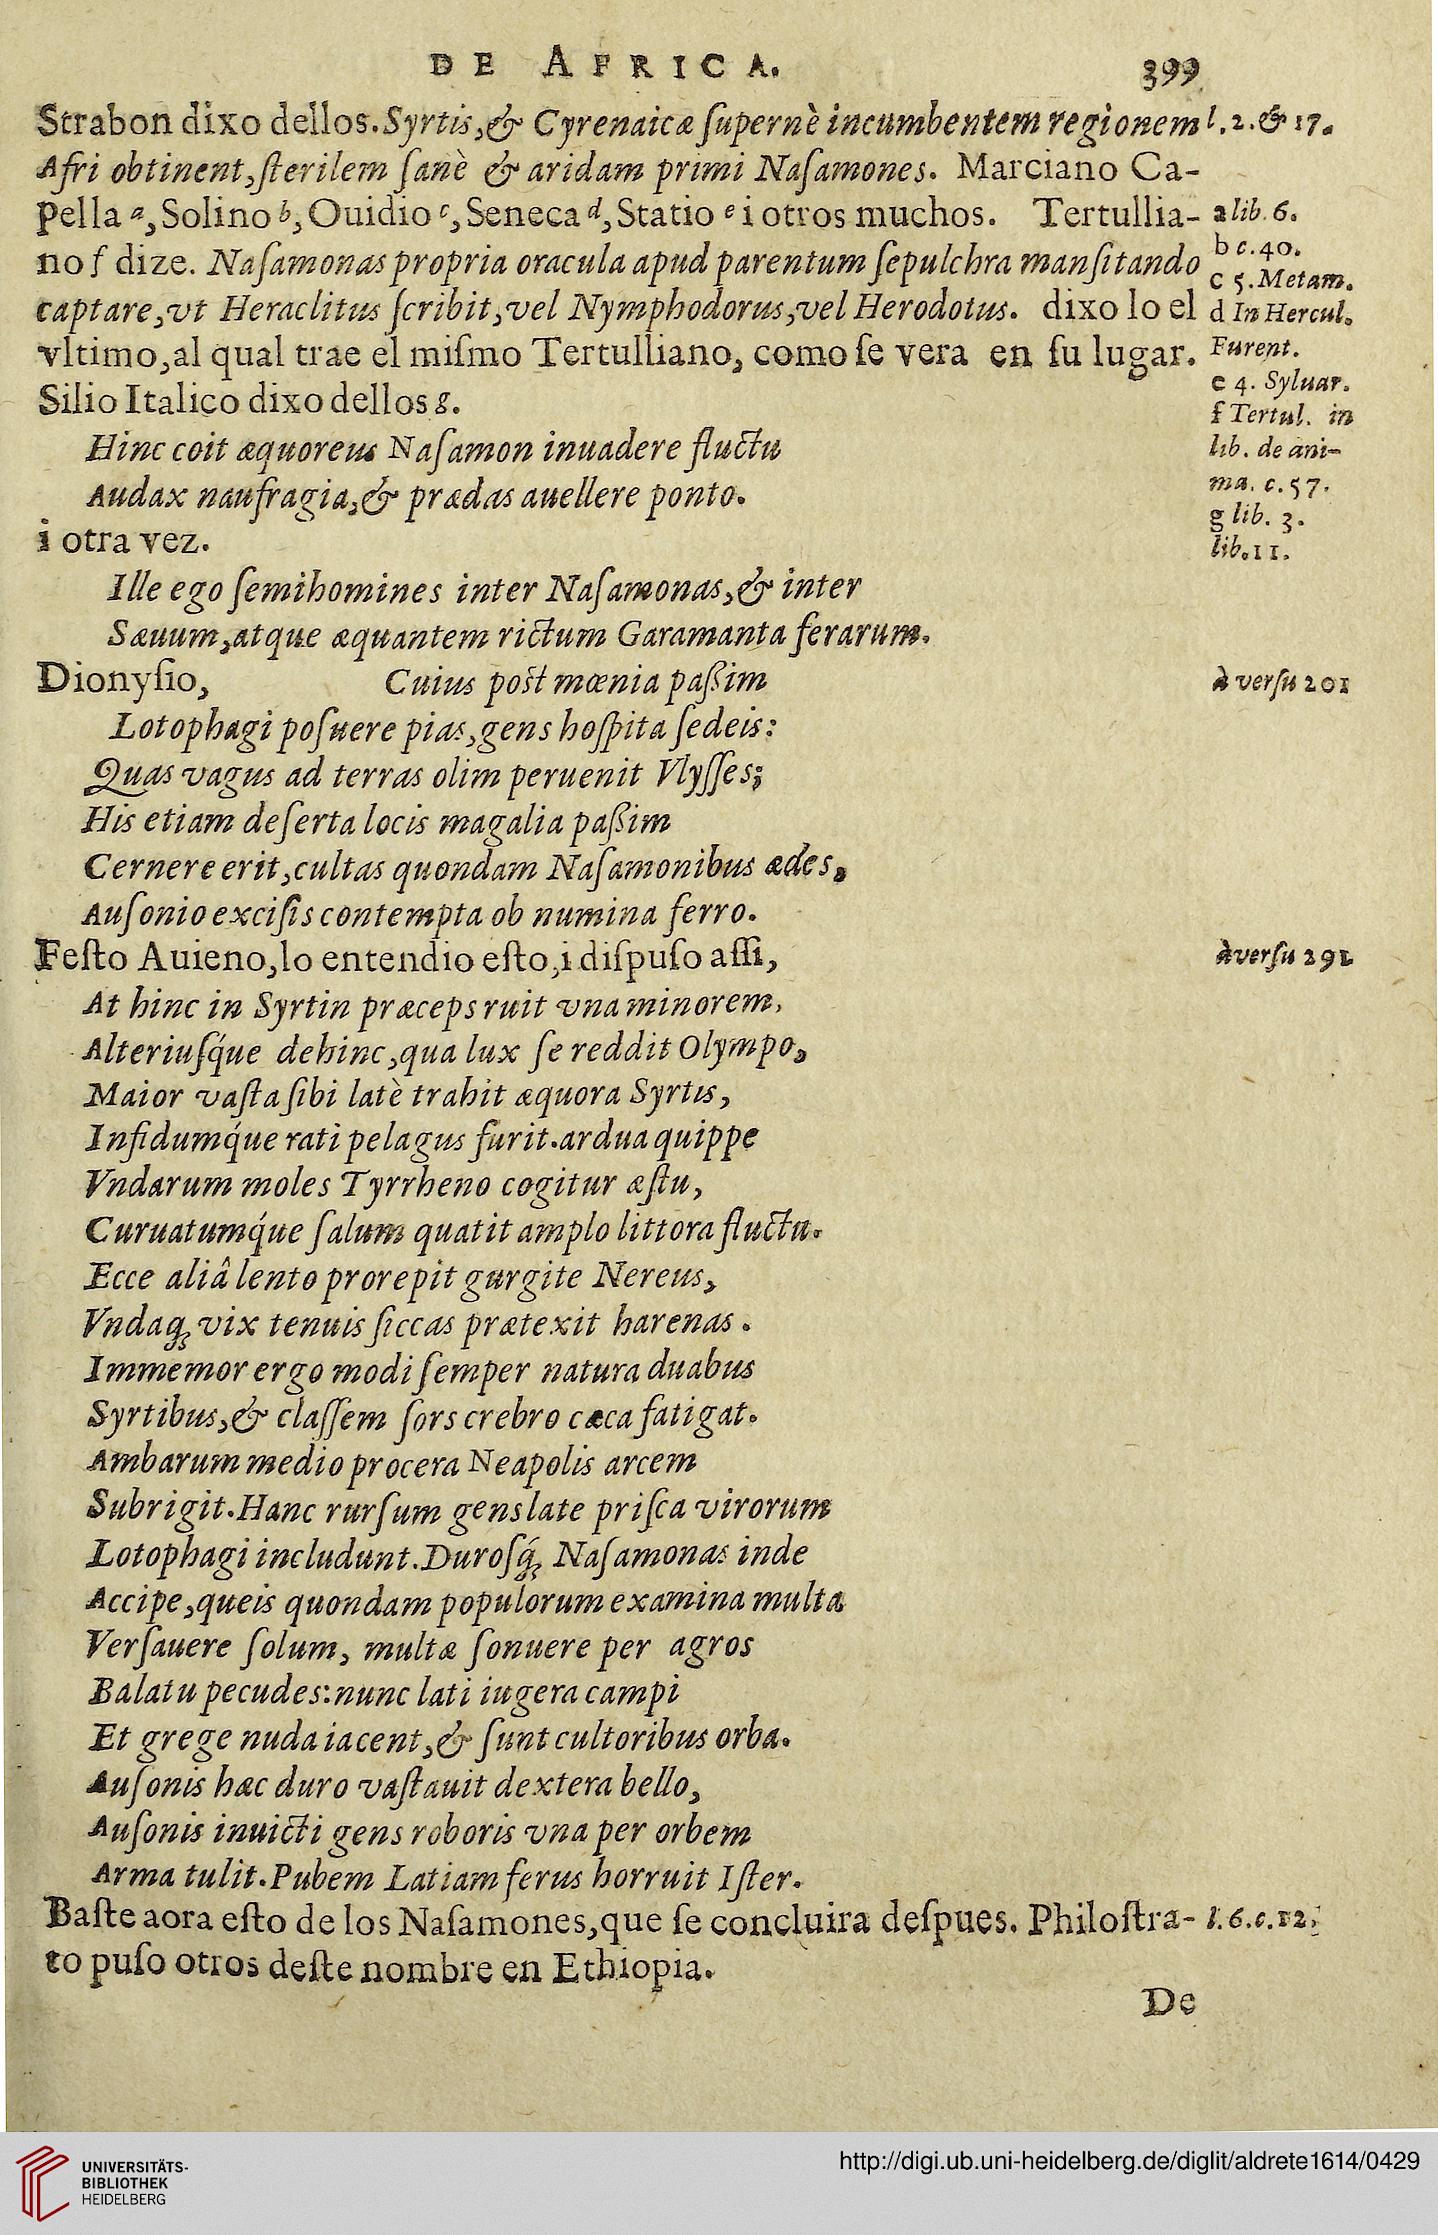 DE AFRICA. 399
Strabon dixo dellos. Syrtis, & Cyrenaicæ ſupernè incumbentem regionem l. 2. & 17.
Afri obtinent, ſterilem ſanè & aridam primi Naſamones. Marciano Ca-
pella a, Solino b, Ouidio c, Seneca d, Statio e i otros muchos. Tertullia-
no f dize. Naſamonas propria oracula apud parentum ſepulchra manſitando
captare, vt Heraclitus ſcribit, vel Nymphodorus, vel Herodotus. dixo lo el
vltimo, al qual trae el miſmo Tertulliano, como ſe vera en ſu lugar.
Silio Italico dixo dellos g.
a lib. 6.
b c. 40.
c 5. Metam.
d In Hercul.
Furent.
e 4. Syluar.
f Tertul. in
lib. de ani-
ma. c. 57.
g lib. 3.
lib. 11.
Hinc coit æquoreus Naſamon inuadere fluctu
Audax naufragia, & prædas auellere ponto.
i otra vez.
Ille ego ſemihomines inter Naſamonas, & inter
Sæuum, atque æquantem rictum Garamanta ferarum.
Dionyſio, Cuius poſt mœnia paßim à verſu 201
Lotophagi poſuere pias, gens hoſpita ſedeis:
Quas vagus ad terras olim peruenit Vlyſſes;
His etiam deſerta locis magalia paßim
Cernere erit, cultas quondam Naſamonibus ædes,
Auſonio exciſis contempta ob numina ferro.
Feſto Auieno, lo entendio eſto, i diſpuſo aſſi, à verſu 291
At hinc in Syrtin præceps ruit vna minorem,
Alteriuſq́ue dehinc, qua lux ſe reddit Olympo,
Maior vaſta ſibi latè trahit æquora Syrtis,
Infidumq́ue rati pelagus furit. ardua quippe
Vndarum moles Tyrrheno cogitur æſtu,
Curuatumq́ue ſalum quatit amplo littora fluctu.
Ecce aliâ lento prorepit gurgite Nereus,
Vndaq; vix tenuis ſiccas prætexit harenas.
Immemor ergo modi ſemper natura duabus
Syrtibus, & claſſem ſors crebro cæca fatigat.
Ambarum medio procera Neapolis arcem
Subrigit. Hanc rurſum gens late priſca virorum
Lotophagi includunt. Duroſq́; Naſamonas inde
Accipe, queis quondam populorum examina multa
Verſauere ſolum, multæ ſonuere per agros
Balatu pecudes: nunc lati iugera campi
Et grege nuda iacent, & ſunt cultoribus orba.
Auſonis hæc duro vaſtauit dextera bello,
Auſonis inuicti gens roboris vna per orbem
Arma tulit. Pubem Latiam ferus horruit Iſter.
Baſte aora eſto de los Naſamones, que ſe concluira deſpues. Philoſtra- l. 6. c. 12.
to puſo otros deſte nombre en Ethiopia.
De
UNIVERSITÄTS-
BIBLIOTHEK
HEIDELBERG
http://digi.ub.uni-heidelberg.de/diglit/aldrete1614/0429